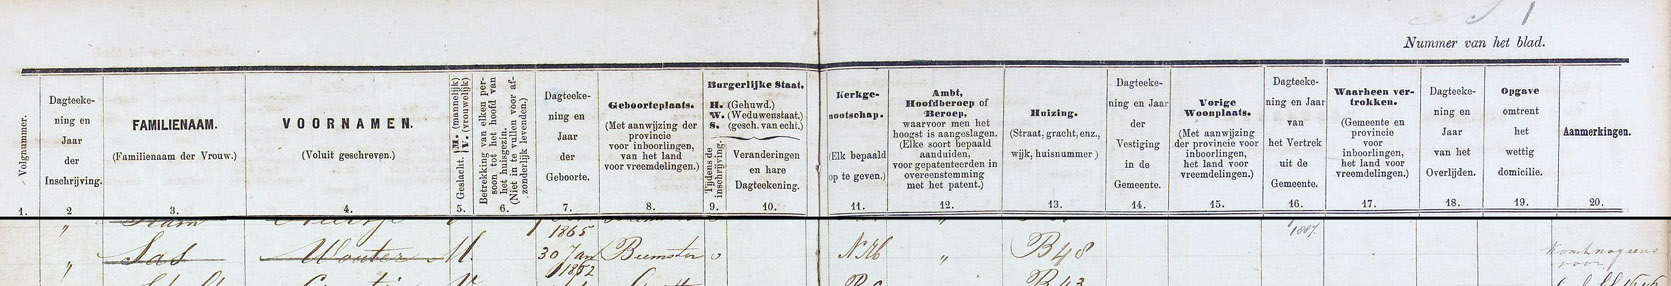 Nummer van het blad.
Volgnummer.
1.
Dagteeke-
ning en
Jaar
der
Inschrijving.
2
FAMILIENAAM.
(Familienaam der Vrouw.)
3.
VOORNAMEN.
(Voluit geschreven.)
4.
Geslacht. M. (mannelijk)
V. (vrouwelijk)
5.
Betrekking van elken per-
soon tot het hoofd van
het huisgezin.
(Niet in te vullen voor af-
zonderlijk levenden.)
6.
Dagteeke-
ning en
Jaar
der
Geboorte.
7.
Geboorteplaats.
(Met aanwijzing der
provincie
voor inboorlingen,
van het land
voor vreemdelingen.)
8.
Burgerlijke Staat.
H. (Gehuwd.)
W. (Weduwenstaat.)
S. (gesch. van echt.)
Tijdens de
inschrijving.
9.
Veranderingen
en hare
Dagteekening.
10.
Kerkge-
nootschap.
(Elk bepaald
op te geven.)
11.
Ambt,
Hoofdberoep of
Beroep,
waarvoor men het
hoogst is aangeslagen.
(Elke soort bepaald
aanduiden,
voor gepatenteerden in
overeenstemming
met het patent.)
12.
Huizing.
(Straat, gracht, enz.,
wijk, huisnummer)
13.
Dagteeke-
ning en Jaar
der
Vestiging
in de
Gemeente.
14.
Vorige
Woonplaats.
(Met aanwijzing
der provincie voor
inboorlingen,
het land voor
vreemdelingen.)
15.
Dagteeke-
ning en Jaar
van
het Vertrek
uit de
Gemeente.
16.
Waarheen ver-
trokken.
(Gemeente en
provincie
voor
inboorlingen,
het land voor
vreemdelingen.)
17.
Dagteeke-
ning en
Jaar
van het
Overlijden.
18.
Opgave
omtrent
het
wettig
domicilie.
19.
Aanmerkingen.
20.
„ 1865
„ Sas Wouter M. 30 Jan 1852 Beemster o N.H. „ B48 Komt nog eens voor
V B43